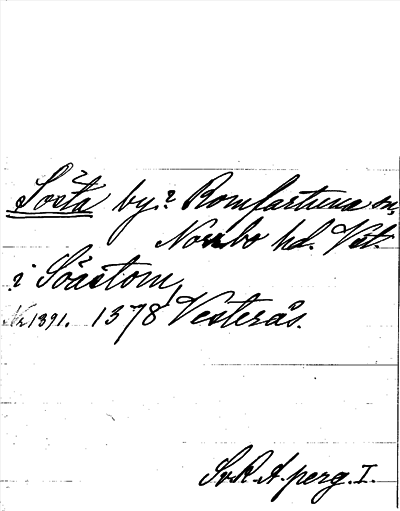 Sosta by? Romfartuna sn,
Norrbo hd. Vstl.
i Soastom,
Nr 1391. 1378 Vesterås.
SvR. A. perg. I.